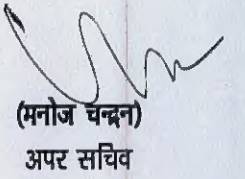 (मनोज चन्द्रन)
अपर सचिव